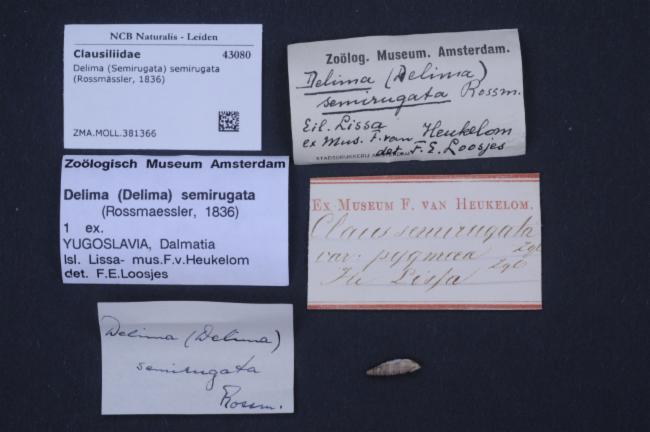 NCB Naturalis - Leiden
Clausiliidae 43080
Delima (Semirugata) semirugata
(Rossmässler, 1836)
ZMA.MOLL.381366
Zoölog. Museum. Amsterdam.
Delima (Delima)
semirugata Rossm.
Eil. Lissa
ex Mus. F. van Heukelom
det. F. E. Loosjes
STADSDRUKKERIJ AMSTERDAM
Zoölogisch Museum Amsterdam
Delima (Delima) semirugata
(Rossmaessler, 1836)
1 ex.
YUGOSLAVIA, Dalmatia
Isl. Lissa- mus.F.v.Heukelom
det. F.E.Loosjes
Ex Museum F. van Heukelom.
Claus semirugata
var. pygmaea Zgl
Lissa Zgl
Delima (Delima)
semirugata
Rossm.